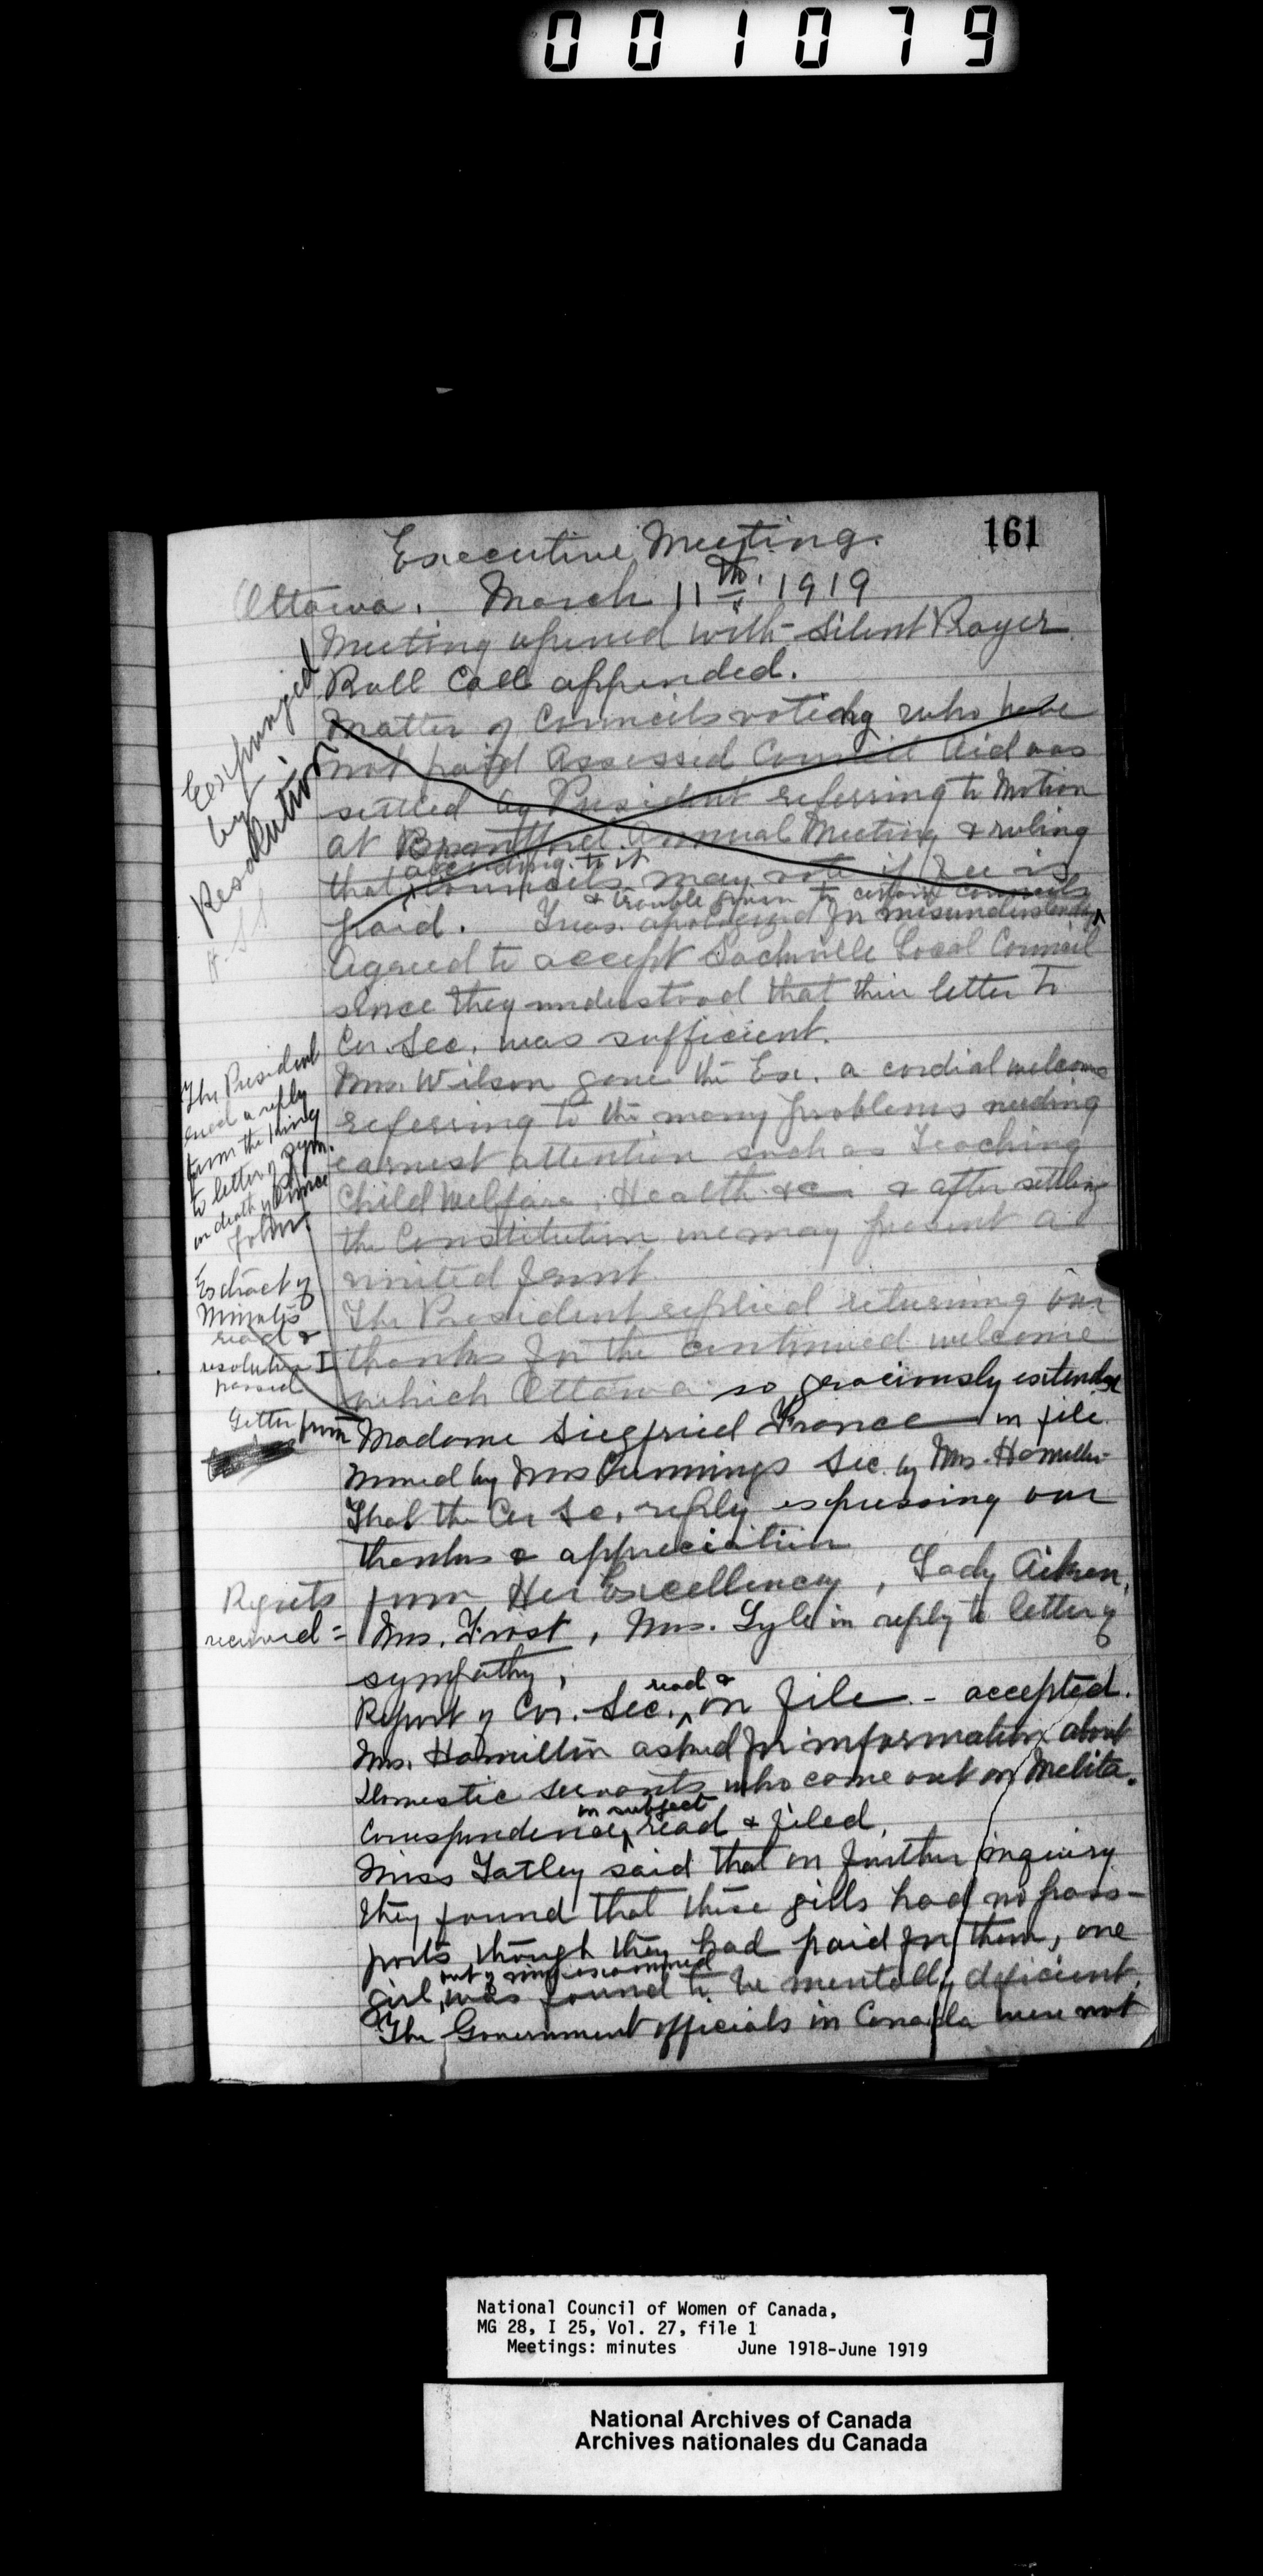 001079
161
Executive Meeting.
Ottawa. March 11th. 1919
Meeting opened with Silent Prayer
Roll Call appended.
Expunged
by
Resolution
Matter of Councils voting who have
not paid Assessed Council Aid was
settled by President referring to Motion
at Brantford Annual Meeting & ruling
according to it
that Councils may vote if fee is
& trouble given to certain Councils
paid. Treas. apologized for misunderstanding
Agreed to accept Sackville Local Council
since they understood that their letter to
Cor. Sec. was sufficient.
The President
read a reply
from the King
to letter of sym.
on death of Prince
John.
Mrs. Wilson gave the Exe. a cordial welcome
referring to the many problems needing
earnest attention such as Teaching
Child Welfare, Health &c & after settling
the Constitution we may present a
united front.
Extract of
Minutes
read &
resolution I
passed
The President replied returning our
thanks for the continued welcome
which Ottawa so graciously extends
Letter from
Madame Siegfried France on file.
Moved by Mrs Cummings Sec. by Mrs. Hamilton
That the Cor Sec. reply expressing our
thanks & appreciation
Regrets
received =
from Her Excellency, Lady Aikens,
Mrs. Frost, Mrs. Lyle in reply to letter of
sympathy,
read &
Report of Cor. Sec. on file - accepted.
Mrs. Hamilton asked for information about
Domestic Servants who came out on Melita.
on subject
Correspondence read & filed.
Miss Tatley said that on further inquiry
they found that these girls had no pass-
ports though they had paid for them, one
out of nine examined
girl was found to be mentally deficient.
The Government officials in Canada were not
National Council of Women of Canada,
MG 28, I 25, Vol. 27, file 1
Meetings: minutes June 1918-June 1919
National Archives of Canada
Archives nationales du Canada